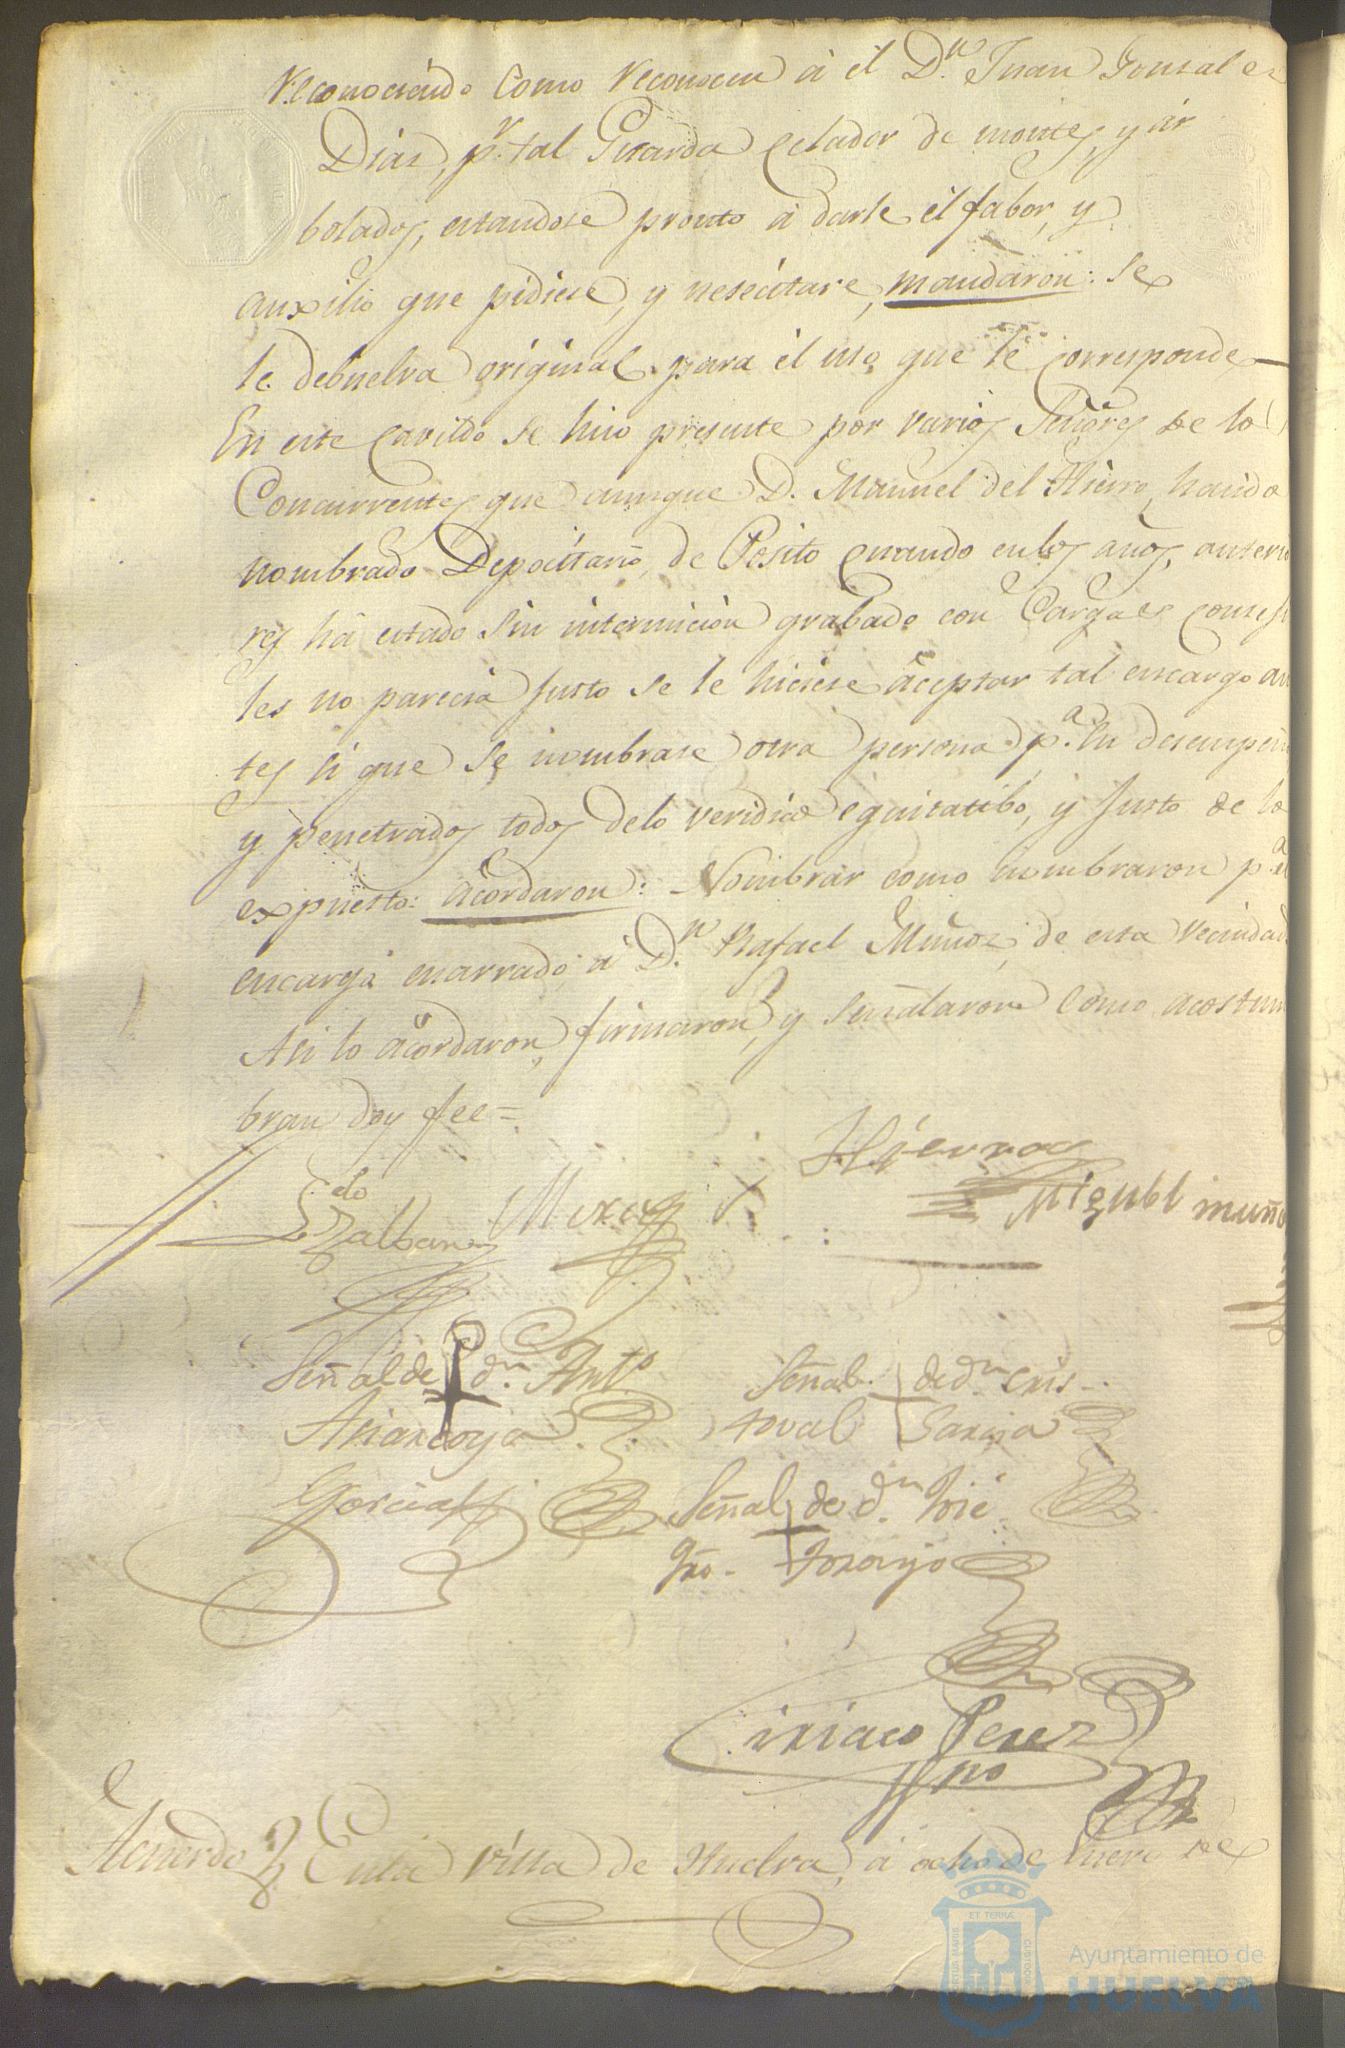 Reconociendo como Reconocen à él D.n Juan Gonsalez
Dias, p.r tal Guarda Celador de montes, y ár
bolados, estandose pronto à darle él fabor, y
auxilio que pidiese, y nesecitare, mandaron: se
le debuelva original para él uso que le corresponde
En este Cavildo se hiso presente por varios Señores de los
Concurrentes que aunque D. Manuel del Hierro, haido
nombrado Depocitario, de Posito quando en los años, anterio
res há estado sin intermicion grabado con Cargas conseji
les no parecia Justo se le hiciese aceptar tal encargo an
tes si que se nombrase otra persona p.a su desempeño
y penetrados todos delo veridico equitatibo, y Justo de lo
expuesto: acordaron: Nombrar como nombraron p.a el
encargo enarrado, à D.n Rafael Muñoz, de esta Vecindad
Asi lo acordaron, firmaron, y señalaron como acostum
bran doy fee=
Hierro
L.do Zalban
Miguel muño
Señal de d.n Ant.o
Señal de d.n Cris
toval Garsia
Garcia
Señal de d.n José
Gro. Torayo
Ciriaco Perez
Acuerdo En la villa de Huelva, à ocho de Enero de
ET TERRÆ
PORTUS MARIS
CUSTODIA
Ayuntamiento de
HUELVA